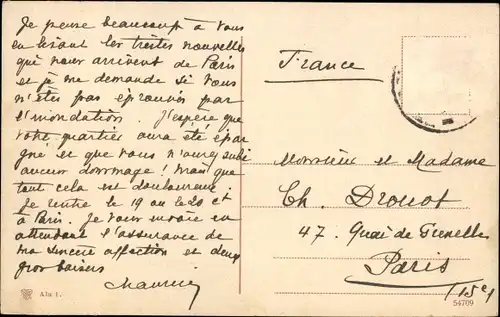 Je pense beaucoup à vous
en lisant les tristes nouvelles
qui nous arrivent de Paris
et je me demande si vous
n'êtes pas éprouvés par
l'inondation. J'espère que
votre quartier aura été épar
gné et que vous n'aurez subi
aucun dommage! Mais que
tout cela est douloureux!
Je rentre le 19 ou le 20 ct
à Paris. Je vous envoie en
attendant l'assurance de
ma sincère affection et deux
gros baisers
Maurice
France
Monsieur et Madame
Ch. Drouot
47. Quai de Grenelle
Paris
(15e)
54709